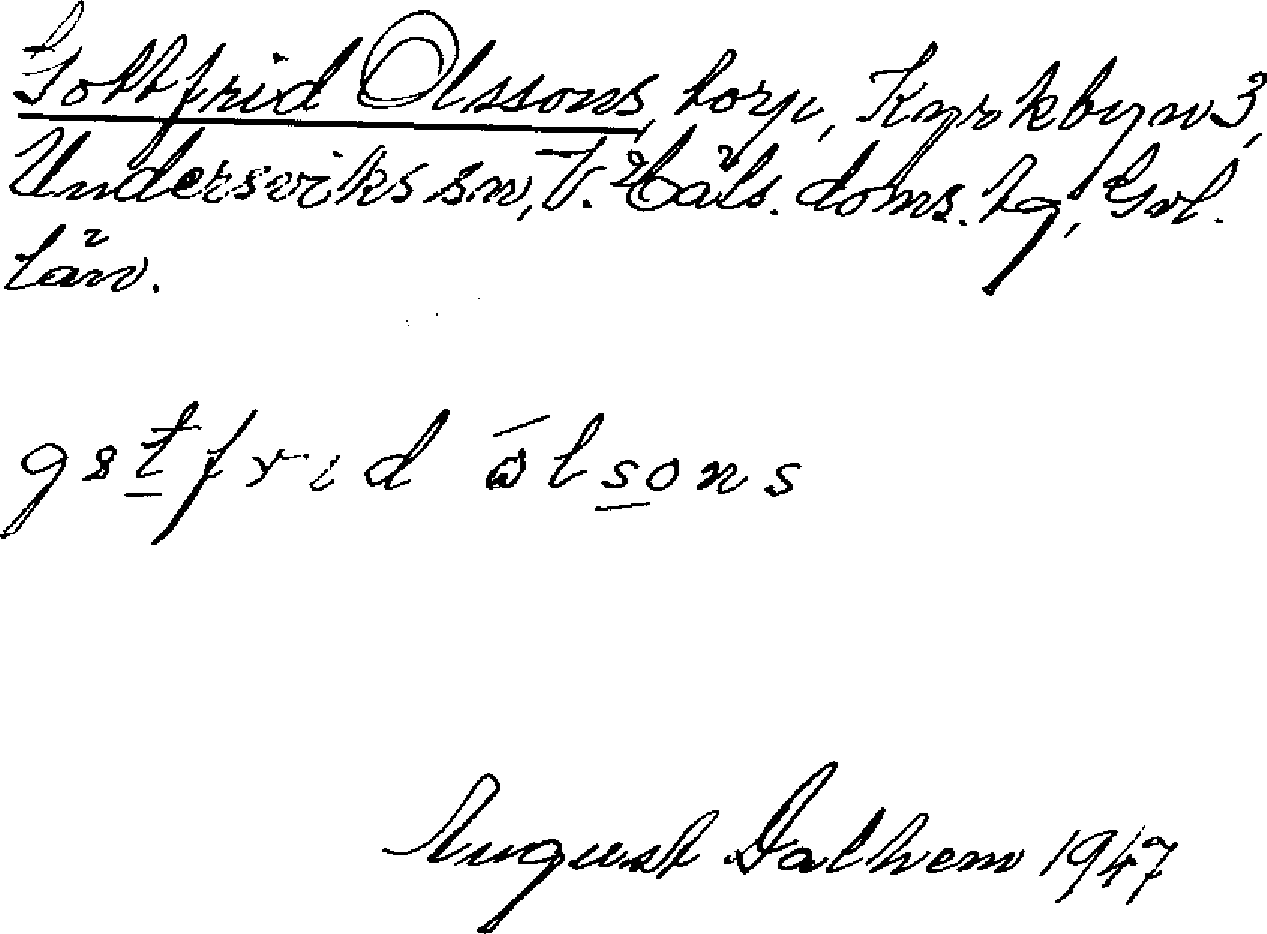 Gottfrid Olssons, torp, Kyrkbyn 3,
Undersviks sn, V. Häls. doms. tg, Gvl.
län.
gstfrid ōlsons
August Dalhem 1947